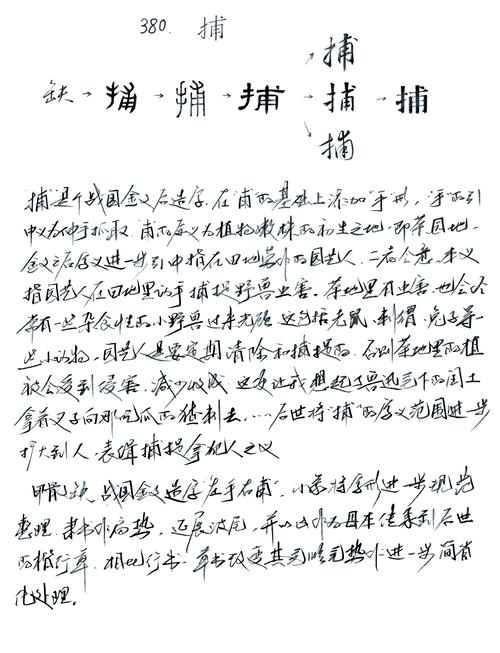 380. 捕
捕
缺 → 捕 → 捕 → 捕 → 捕 → 捕
捕
"捕"是个战国金文后造字。在"甫"的基础上添加"手"形，"手"的引
中义为伸手抓取。甫的原义为植物嫩株的初生之地，即菜园地。
金文之后字义进一步引申指在田地劳作的园艺人。二者会意，本义
指园艺人在田地里以手捕捉野兽虫害。菜地里有虫害，也会经
常有一些杂食性的小野兽过来光顾，这包括老鼠、刺猬、兔子等一
些小动物，园艺人是要定期清除和捕捉的。否则菜地里的植
被会受到侵害，减少收成。这套让我想起了鲁迅笔下的闰土
拿着叉子向那吃瓜的猹刺去……后世将"捕"的字义范围进一步
扩大到人，表缉捕捉拿犯人之义
甲骨缺，战国金文造字"左手右甫"，小篆将字形进一步规范
整理。隶书外扁势，延展波尾，并以此为母本传承到后世
的楷行草。相比行书，草书改变其笔顺笔势外进一步简省
化处理。